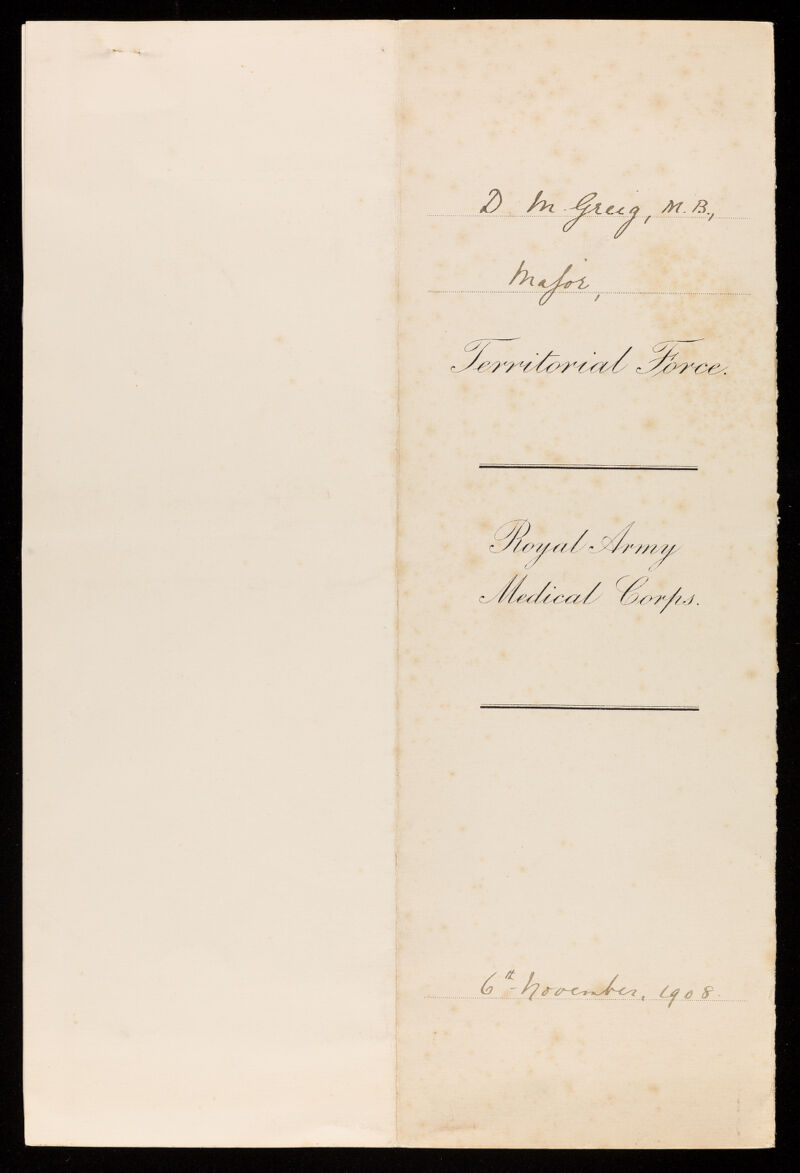 D M Greig, M.B.,
Major,
Territorial Force.
Royal Army
Medical Corps.
6th November, 1908.